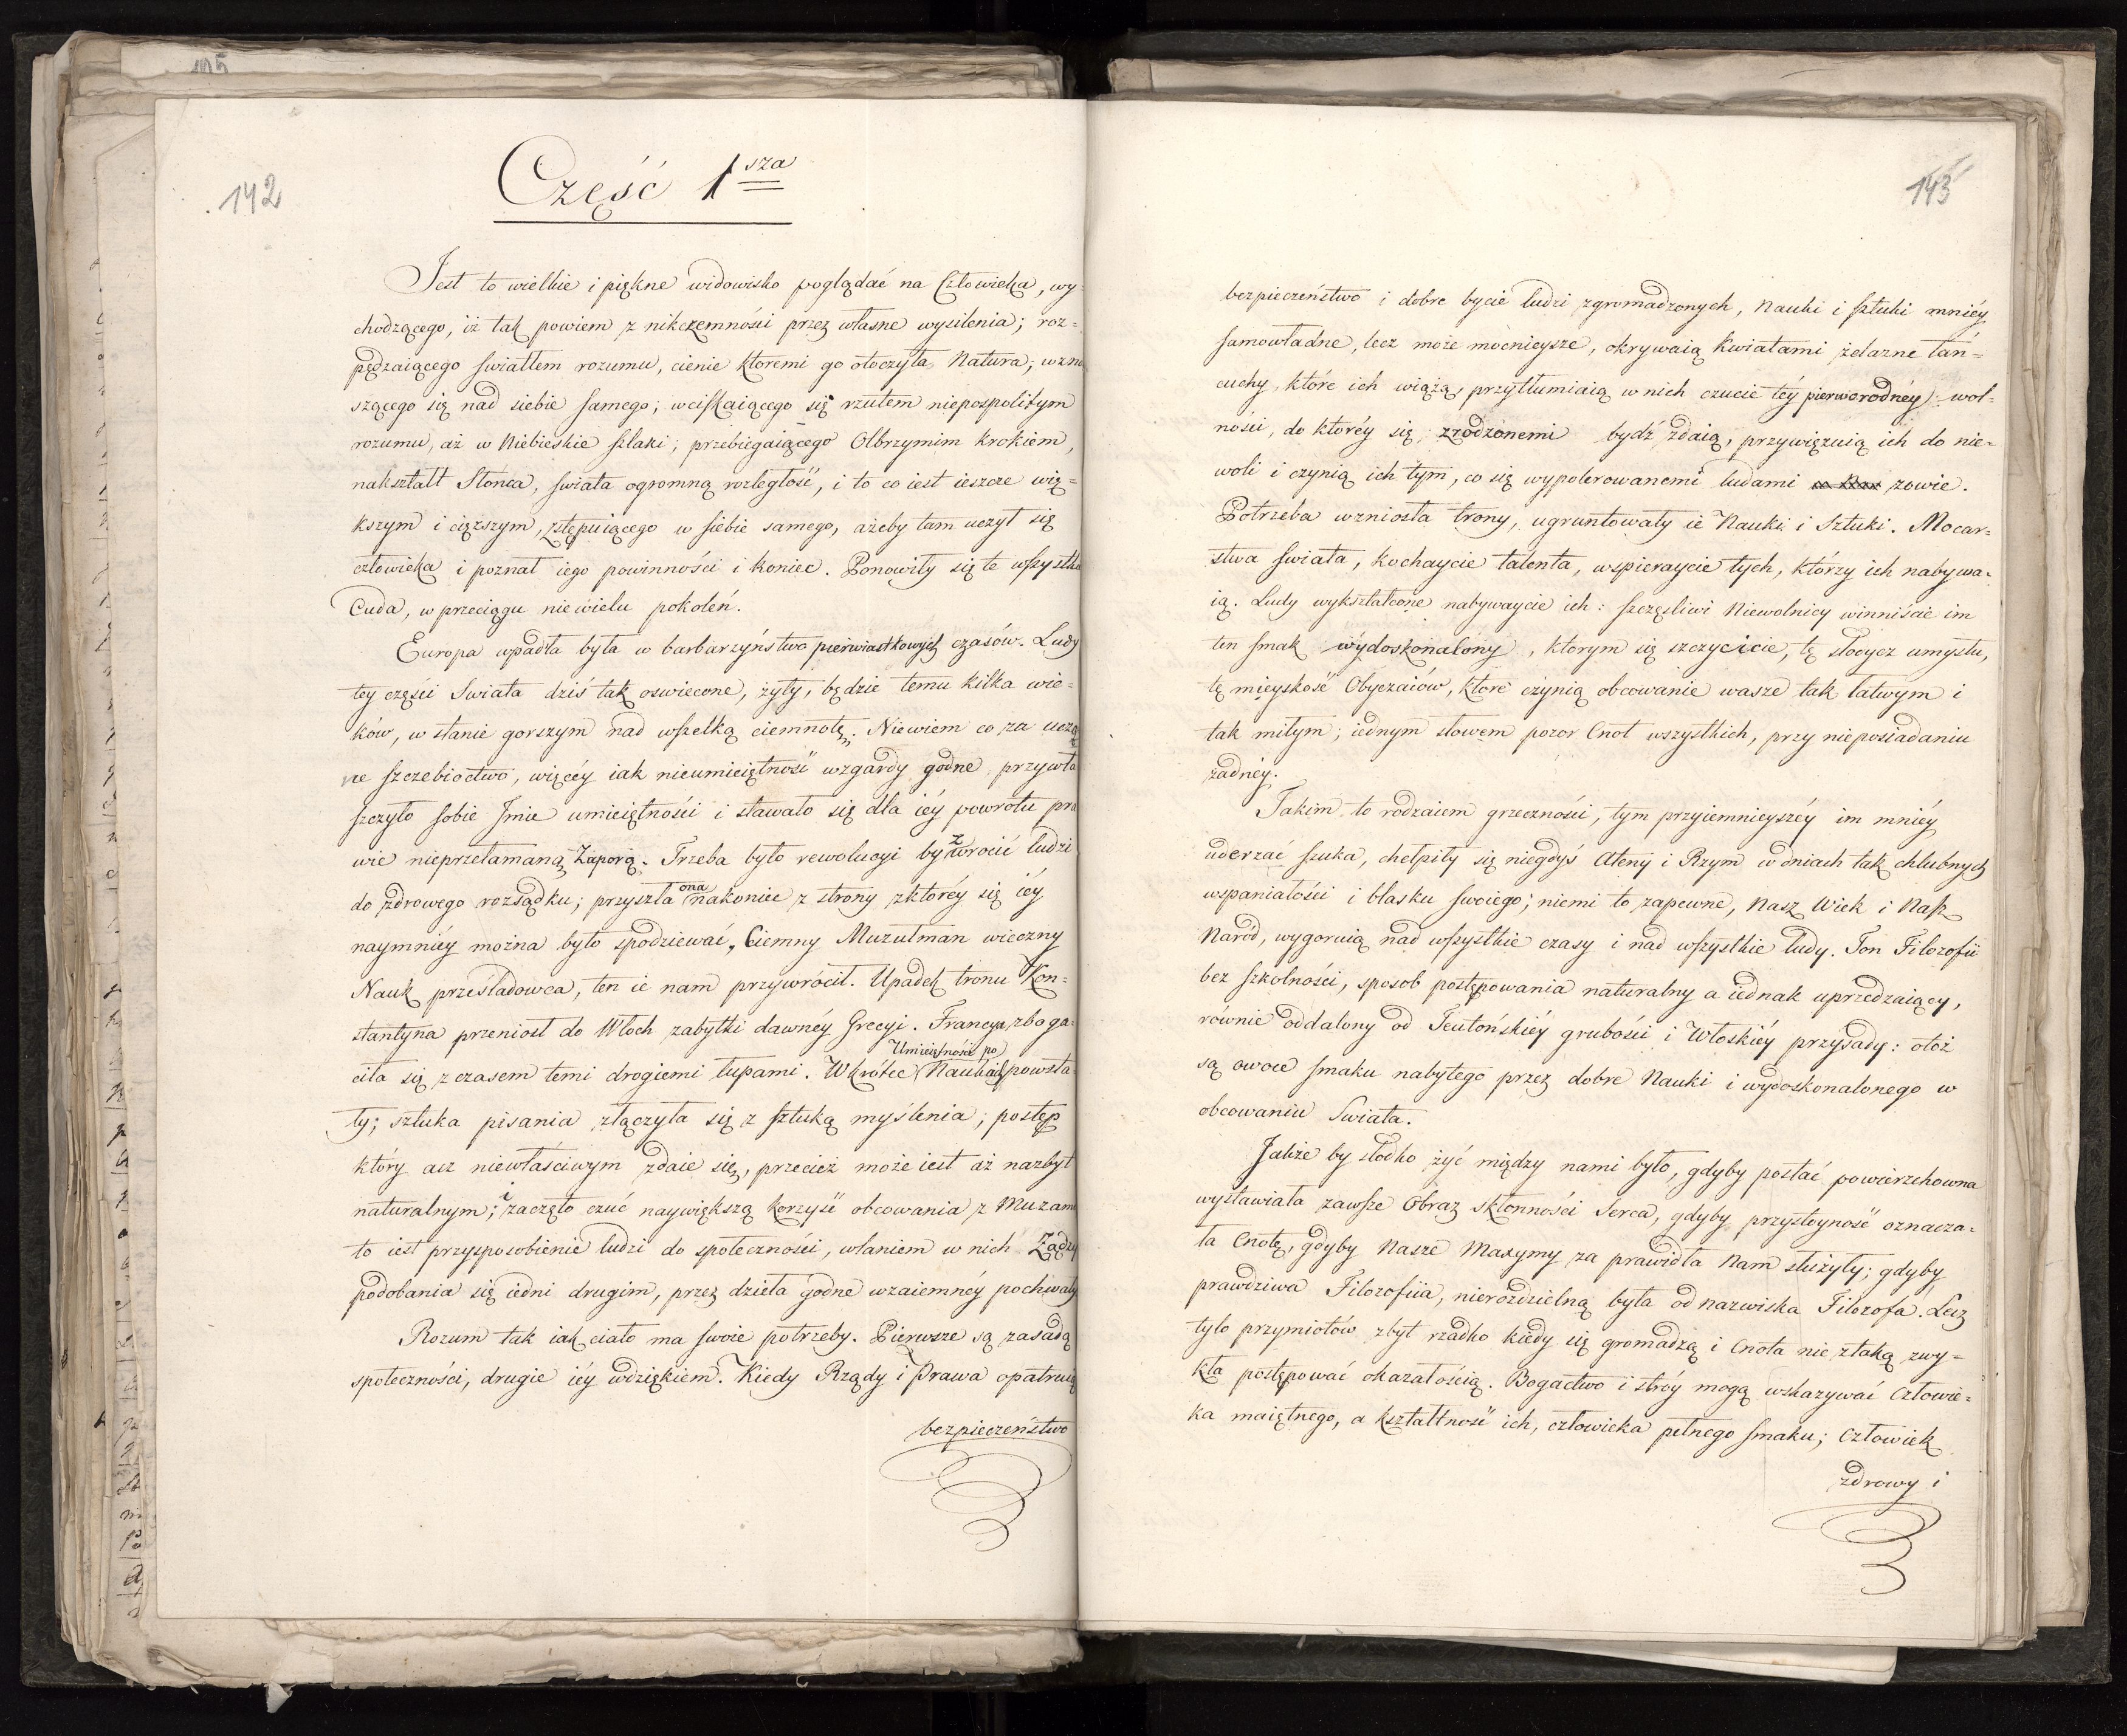 105
142
Część 1sza
Jest to wielkie i piękne widowisko poglądać na Człowieka, wy-
chodzącego, iż tak powiem z nikczemności przez własne wysilenia; roz=
pędzaiącego swiatłem rozumu, cienie ktoremi go otoczyła Natura; wzno
szącego się nad siebie samego; wciskaiącego się rzutem niepospolitym
rozumu, aż w Niebieskie szlaki; przebiegaiącego Olbrzymim krokiem,
nakształt Słonca, swiata ogromną rozległość, i to co iest ieszcze wię=
kszym i cięższym, zstępuiącego w siebie samego, ażeby tam uczył się
człowieka i poznał iego powinności i koniec. Ponowiły się te wszystkie
Cuda, w przeciągu niewielu pokoleń.
Europa upadła była w barbarzyństwo pierwiastkowych czasów. Ludy
tey części Swiata dziś tak oswiecone, żyły, będzie temu kilka wie=
ków, w stanie gorszym nad wszelką ciemnotę. Niewiem co za uczo
ne szczebioctwo, więcéy iak nieumieiętność wzgardy godne przywła
szczyło sobie Jmie umieiętności i stawało się dla iéy powrotu pra
wie nieprzełamaną Zaporą. Trzeba było rewolucyi by zwrocić ludzi
do zdrowego rozsądku; przyszła ona nakoniec z strony zktoréy się iéy
naymniéy można było spodziewać, Ciemny Muzułman wieczny
Nauk prześladowca, ten ie nam przywrócił. Upadek tronu Kon=
stantyna przeniosł do Włoch zabytki dawnéy Grecyi. Francya zboga=
ciła się z czasem temi drogiemi łupami. Wkrótce Umieiętności po Naukach powsta
ły; sztuka pisania złączyła się z sztuką myślenia; postęp
który acz niewłaściwym zdaie się, przecież może iest aż nazbyt
naturalnym; i zaczęto czuć naywiększą korzyść obcowania z Muzami
to iest przysposobienie ludzi do społeczności, wlaniem w nich Żądzy
podobania się iedni drugim, przez dzieła godne wzaiemnéy pochwały
Rozum tak iak ciało ma swoie potrzeby. Pierwsze są zasadą
społeczności, drugie iéy wdziękiem. Kiedy Rządy i Prawa opatruią
bezpieczeństwo
143
bezpieczeństwo i dobre bycie ludzi zgromadzonych, Nauki i sztuki mniéy
samowładne, lecz może mocnieysze, okrywaią kwiatami żelazne łań=
cuchy, które ich wiążą, przytłumiaią w nich czucie téy pierworodnéy wol=
ności, do któréy się zrodzonemi bydź zdaią, przywięzuią ich do nie=
woli i czynią ich tym, co się wypolerowanemi ludami zowie.
Potrzeba wzniosła trony, ugruntowały ie Nauki i Sztuki. Mocar=
stwa swiata, kochaycie talenta, wspieraycie tych, którzy ich nabywa=
ią. Ludy wykształcone nabywaycie ich: szczęsliwi Niewolnicy winniście im
ten smak wydoskonalony, ktorym się szczycicie, tę słodycz umysłu,
tę mieyskość Obyczaiów, które czynią obcowanie wasze tak łatwym i
tak miłym; iednym słowem pozor Cnot wszystkich, przy nieposiadaniu
żadnéy.
Takim to rodzaiem grzeczności, tym przyiemnieyszéy im mniéy
uderzać szuka, chełpiły się niegdyś Ateny i Rzym w dniach tak chlubnych
wspaniałości i blasku swoiego; niemi to zapewne, Nasz Wiek i Nasz
Naród, wygoruią nad wszystkie czasy i nad wszystkie ludy. Ton Filozofii
bez szkolności, sposob postępowania naturalny a iednak uprzedzaiący,
równie oddalony od Teutońskiéy grubości i Włoskiéy przysady: otoż
są owoce smaku nabytego przez dobre Nauki i wydoskonalonego w
obcowaniu Swiata.
Jakże by słodko żyć między nami było, gdyby postać powierzchowna
wystawiała zawsze Obraz skłonności Serca, gdyby przystoyność oznacza=
ła Cnotę, gdyby Nasze Maxymy za prawidła Nam służyły; gdyby
prawdziwa Filozofiia, nierozdzielną była od nazwiska Filozofa. Lecz
tylo przymiotów zbyt rzadko kiedy się gromadzą i Cnota nie ztaką zwy=
kła postępować okazałością. Bogactwo i stróy mogą wskazywać Człowie=
ka maiętnego, a kształtność ich, człowieka pełnego smaku; Człowiek
zdrowy i